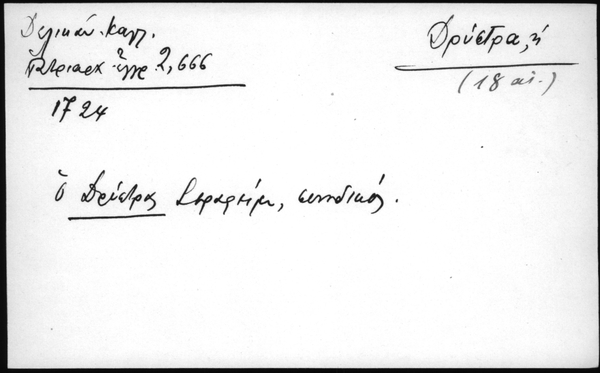 Δελικάν. Καλλ.
Πατριαρχ. ἔγγρ. 2,666
1724
Δρύστρα, ἡ
(18 αἰ.)
ὁ Δρύστρας Σεραφείμ, συνοδικός.